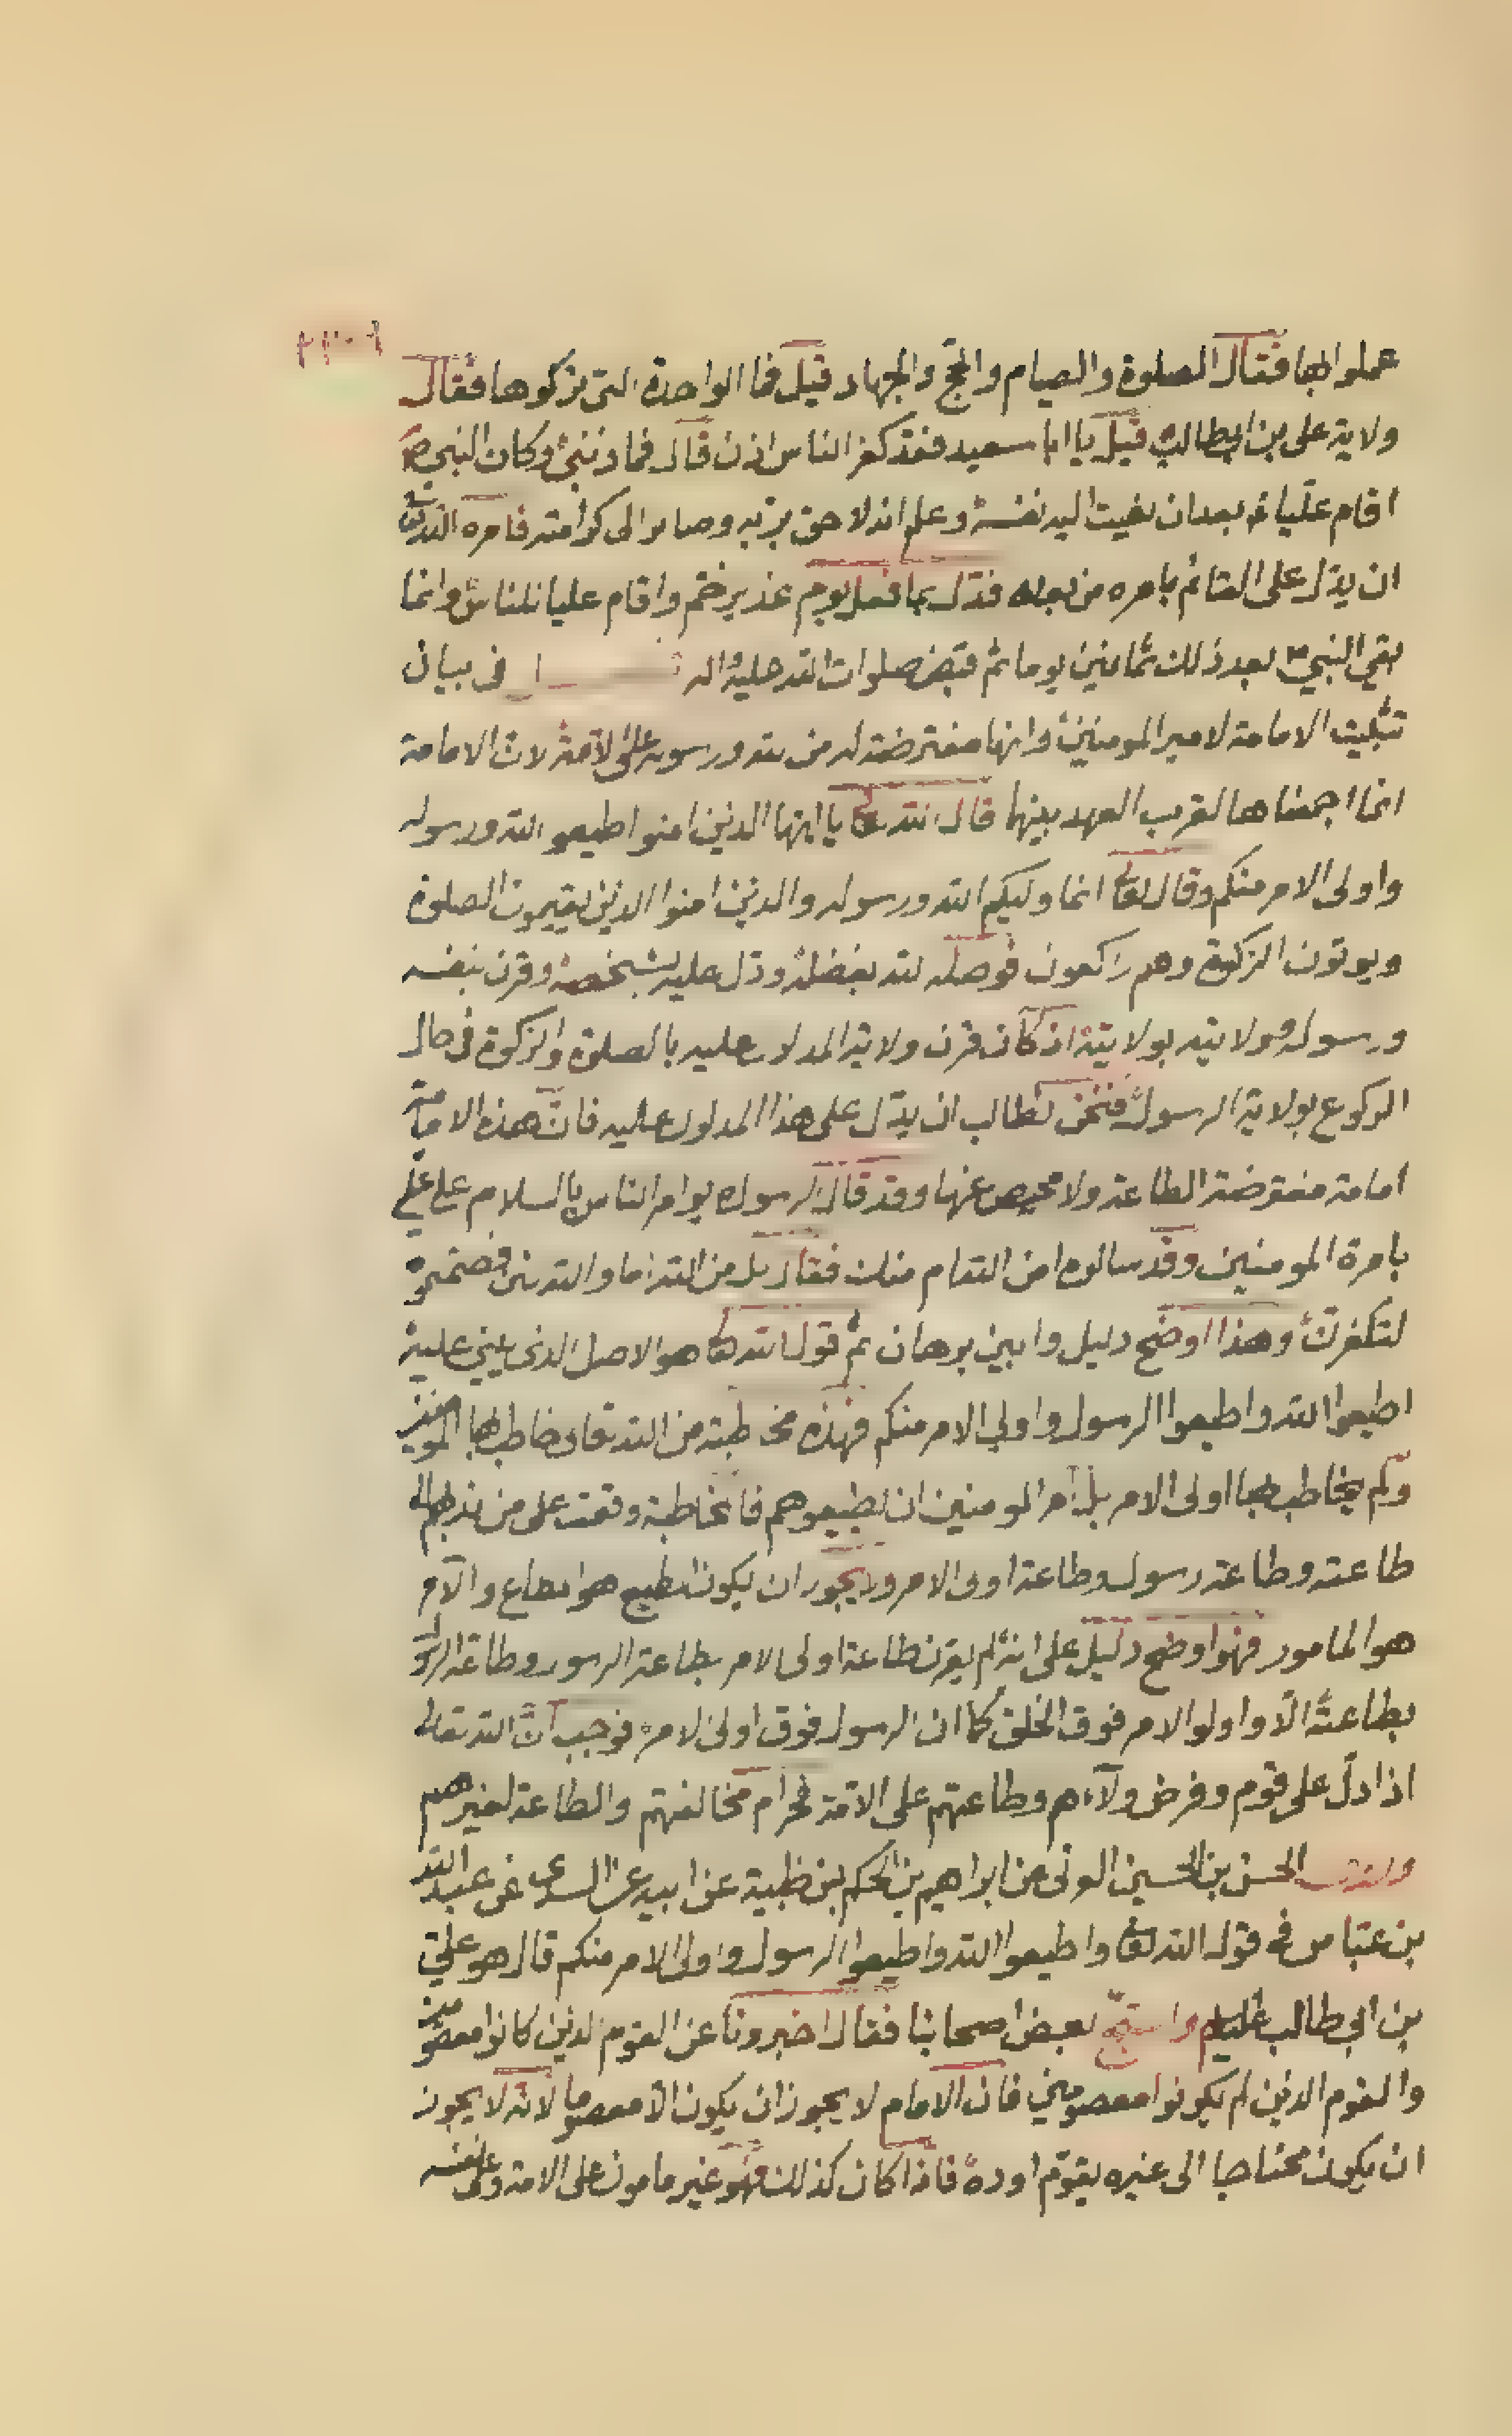 عملوا بها فقال الصلوة والصيام والحج والجهاد قيل فما الواحدة التى تركوها فقال
ولاية على بن ابيطالب قيل يا ابا سعيد فقد كفر الناس اذن قال فما ذنبى وكان النبي ص
اقام عليا بعد ان نعيت اليه نفسه وعلم انه لاحق بربه وصاير الى كرامته فامره الله
ان يدل على القائم بامره من بعده فدل بما فعل يوم غدير خم واقام عليا للناس وانما
بقي النبي بعد ذلك ثمانين يوما ثم قبض صلوات الله عليه واله فى بيان
تثبيت الامامة لامير المومنين وانها مفترضة له من الله ورسوله على الامة لان الامامة
انما اجمعناها لقرب العهد بينها قال الله يا ايها الذين امنوا اطيعوا الله ورسوله
واولى الامر منكم وقال تعا انما وليكم الله ورسوله والذين امنوا الذين يقيمون الصلوة
ويوتون الزكوة وهم راكعون فوصله الله بفضله ودل عليه بشخصه وقرن بنفسه
ورسوله ولايته بولايته اذ كان قرن ولاية المدلول عليه بالصلوة والزكوة فى حال
الركوع بولاية الرسول فنحن نطالب ان يدل على هذا المدلول عليه فان هذه الامامة
امامة مفترضة الطاعة ولا محيص عنها وقد قال الرسول يوامر الناس بالسلام على علي
بامرة المومنين وقد سالوه امن الله ام منك فقال بل من الله اما والله لئن
وهذا اوضح دليل وابين برهان ثم قول الله هو الاصل الذى يبنى عليه
اطيعوا الله واطيعوا الرسول واولي الامر منكم فهذه مخاطبة من الله تعالى خاطب بها المومنين
ولم يخاطب بها اولى الامر بل امر المومنين ان يطيعوهم فالمخاطبة وقعت على من
طاعته وطاعة رسوله وطاعة اولى الامر ولا يجوز ان يكون المطيع هو المطاع والآمر
هو المامور فهو اوضح دليل على انه لم يقرن طاعة اولى الامر بطاعة الرسول وطاعة الرسول
بطاعته الا واولو الامر فوق الخلق كما ان الرسول فوق اولى الامر فوجب ان الله تعالى
اذا دل على قوم وفرض ولآءهم وطاعتهم على الامة فحرام مخالفتهم والطاعة لغيرهم
الحسن بن الحسين العرنى عن ابراهيم بن الحكم بن ظهير عن ابيه عن السدى عن عبد الله
بن عباس في قوله الله تعا واطيعوا الله واطيعوا الرسول واولى الامر منكم قال هو على
بن ابي طالب عليه السلم واحتج بعض اصحابنا فقال اخبرونا عن القوم الذين كانوا معصومين
والقوم الذين لم يكونوا معصومين فان الامام لا يجوز ان يكون الا معصوما لانه لا يجوز
ان يكون محتاجا الى غيره يقوم اوده فاذا كان كذلك فهو غير مامون على الامة وعلى نفسه